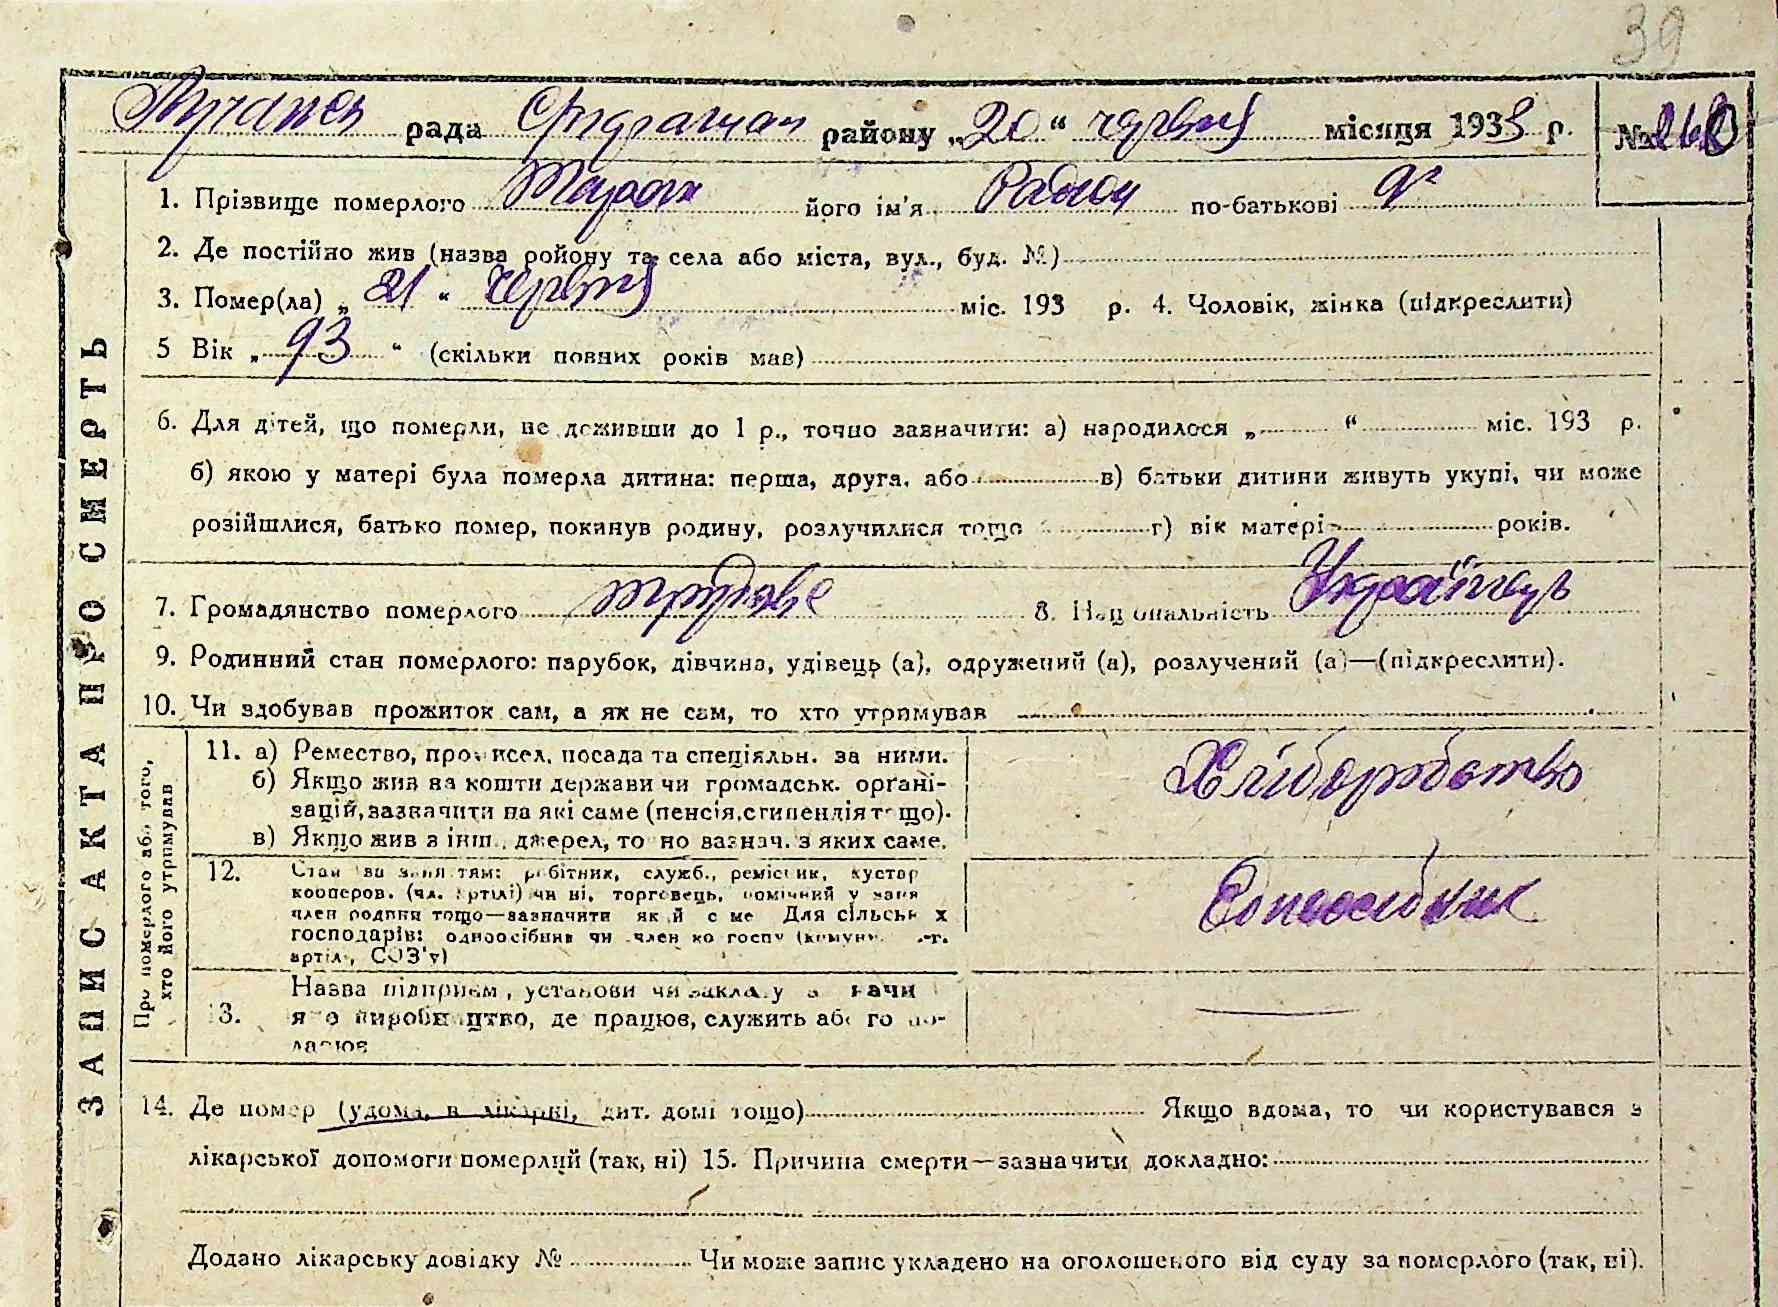 39
рада району „20“ червня місяця 1933 р. №
1. Прізвище померлого його ім'я по-батькові
2. Де постійно жив (назва ройону та села або міста, вул., буд. №)
3. Помер(ла) „21“ червня міс. 193 р. 4. Чоловік, жінка (підкреслити)
5 Вік „93“ (скільки повних років мав)
6. Для дітей, що померли, не доживши до 1 р., точно зазначити: а) народилося „ “ міс. 193 р.
б) якою у матері була померла дитина: перша, друга, або в) батьки дитини живуть укупі, чи може
розійшлися, батько помер, покинув родину, розлучилися тощо г) вік матері років.
7. Громадянство померлого 8. Національність Українець
9. Родинний стан померлого: парубок, дівчина, удівець (а), одружений (а), розлучений (а)—(підкреслити).
10. Чи здобував прожиток сам, а як не сам, то хто утримував
ЗАПИС АКТА ПРО СМЕРТЬ
Про померлого або того,
хто його утримував
11. а) Ремество, промисел, посада та спеціяльн. за ними.
б) Якщо жив на кошти держави чи громадськ. орґані-
зацій, зазначити на які саме (пенсія, стипендія тощо).
в) Якщо жив з інш. джерел, то но вазнач. з яких саме.
Хліборобство
12. Стан за заняттям: робітник, служб., ремісник, кустар
кооперов. (чл. артілі) чи ні, торговець, помічний у
член родини тощо—зазначити який саме Для сільськ х
господарів: одноосібник чи член ко госпу
артілі, СОЗ'у)
Одноосібник
13. Назва підприєм, установи чи закладу
виробництво, де працює, служить або
14. Де помер (удома, в лікарні, дит. домі тощо) Якщо вдома, то чи користувався з
лікарської допомоги померлий (так, ні) 15. Причина смерти—зазначити докладно:
Додано лікарську довідку № Чи може запис укладено на оголошеного від суду за померлого (так, ні).